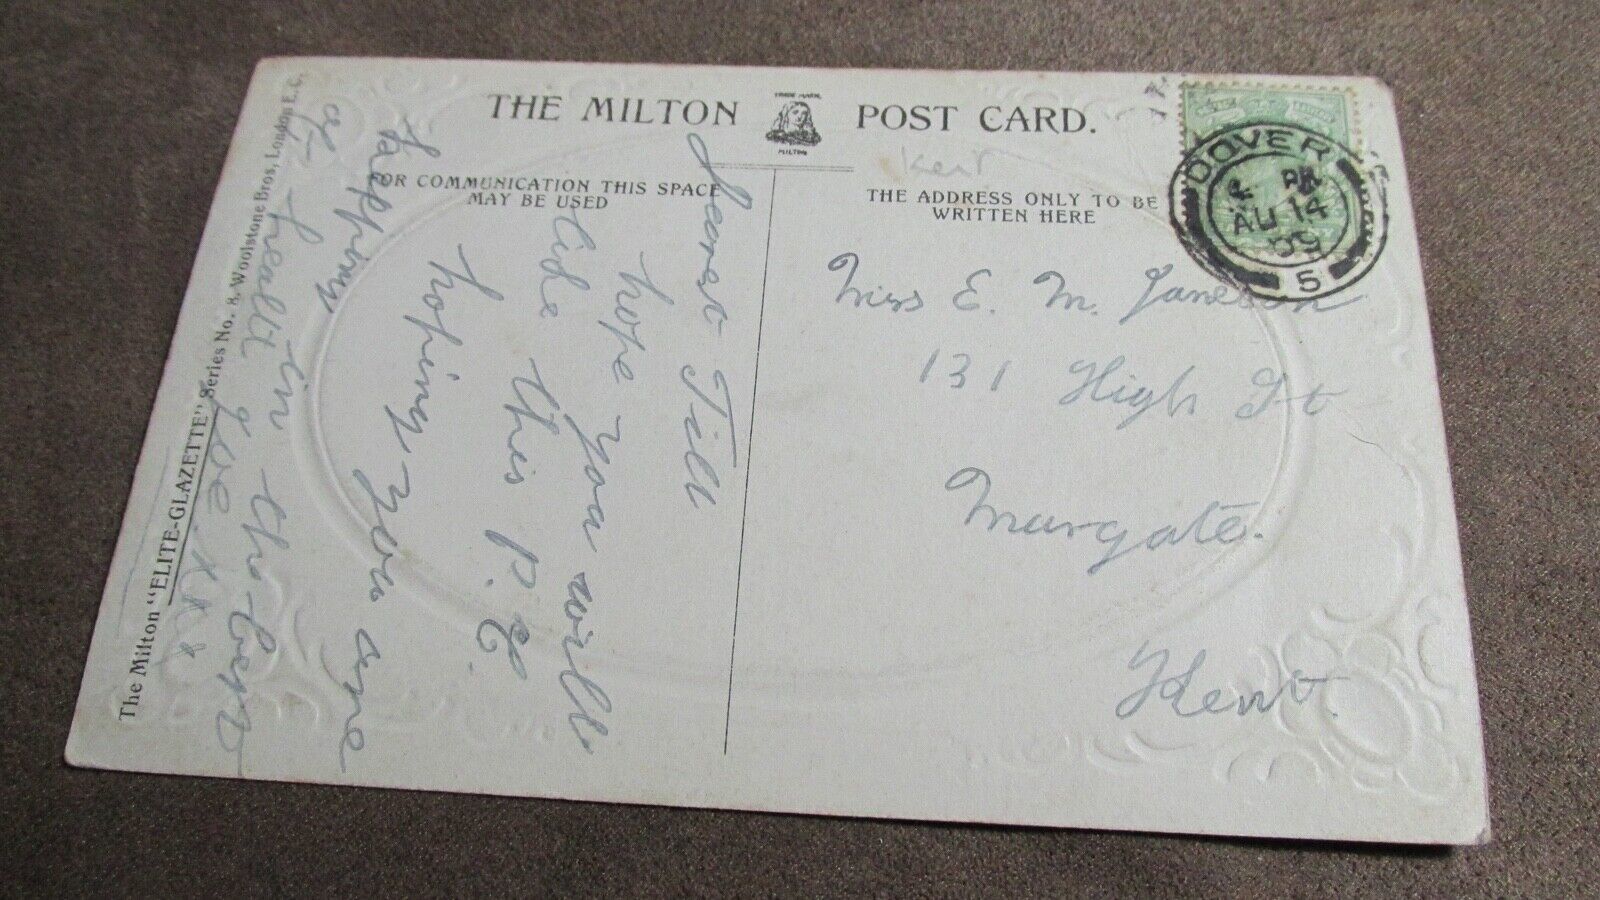 THE MILTON POST CARD.
TRADE MARK
MILTON
Kent
FOR COMMUNICATION THIS SPACE
MAY BE USED
THE ADDRESS ONLY TO BE
WRITTEN HERE
DOVER
PM
AU 14
09
5
Miss E. M.
131 High St
Margate.
Kent.
Dearest Till
hope you will
like this P.C.
hoping you are
keeping
of health in the best
love. xxx
The Milton "ELITE-GLAZETTE" Series No. 8, Woolstone Bros, London E.C.